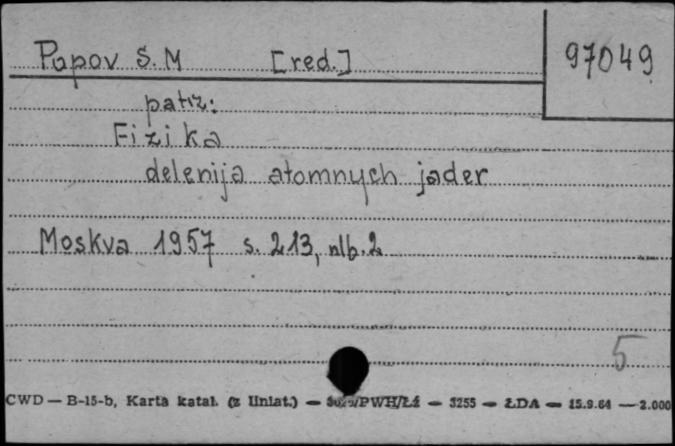 Popov S. M [red.]
97049
patrz:
Fizika
delenija atomnych jader
Moskva 1957 s. 213, nlb. 2
5
CWD — B-15-b, Karta katal. (z liniat.) — /PWH/Łś — 3255 — ŁDA — 15.9.64 — 2.000